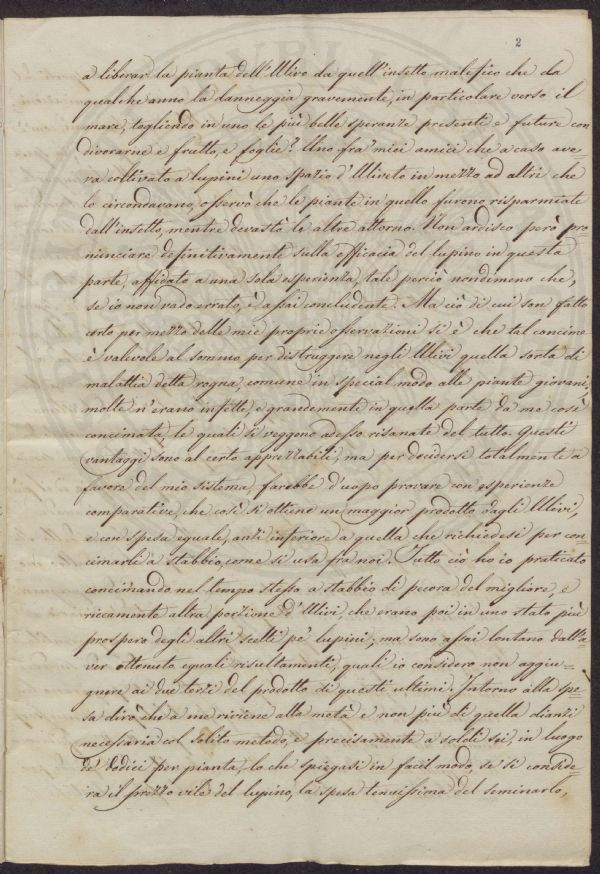 2
a liberar la pianta dell'Ulivo da quell'insetto malefico che da
qualche anno la danneggia gravemente, in particolare verso il
mare, togliendo in uno le più belle speranze presenti e future con
divorarne e frutto, e foglie? Uno fra' miei amici che a caso ave=
va coltivato a lupini uno spazio d'Uliveto in mezzo ad altri che
lo circondavano, osservò che le piante in quello furono risparmiate
dall'insetto, mentre devastò le altre attorno. Non ardisco però pro
nunciare definitivamente sulla efficacia del lupino in questa
parte, affidato a una sola esperienza, tale perciò nondimeno che,
se io non vado errato, è assai concludente. Ma ciò di cui son fatto
certo per mezzo delle mie proprie osservazioni si è che tal concime
è valevole al sommo per distruggere negli Ulivi quella sorta di
malattia detta rogna, comune in special modo alle piante giovani,
molte n'erano infette, e grandemente in quella parte da me così
concimata, le quali si veggono adesso risanate del tutto. Questi
vantaggi sono al certo apprezzabili, ma per decidersi totalmente a
favore del mio sistema, farebbe d'uopo provare con esperienze
comparative, che così si ottiene un maggior prodotto dagli Ulivi,
e con spesa eguale, anzi inferiore a quella che richiedesi per con=
cimarli a stabbio, come si usa fra noi. Tutto ciò ho io praticato
concimando nel tempo stesso a stabbio di pecora del migliore, e
riccamente altra porzione d'Ulivi, che erano poi in uno stato più
prospero degli altri scelti pe' lupini; ma sono assai lontano dall'a
ver ottenuto eguali risultamenti, quali io considero non aggiu=
gnere ai due terzi del prodotto di questi ultimi. Intorno alla spe=
sa dirò che a me riviene alla metà e non più di quella dianzi
necessaria col solito metodo, e precisamente a soldi sei, in luogo
de' dodici per pianta, lo che spiegasi in facil modo, se si conside=
ra il prezzo vile del lupino, la spesa tenuissima del seminarlo,